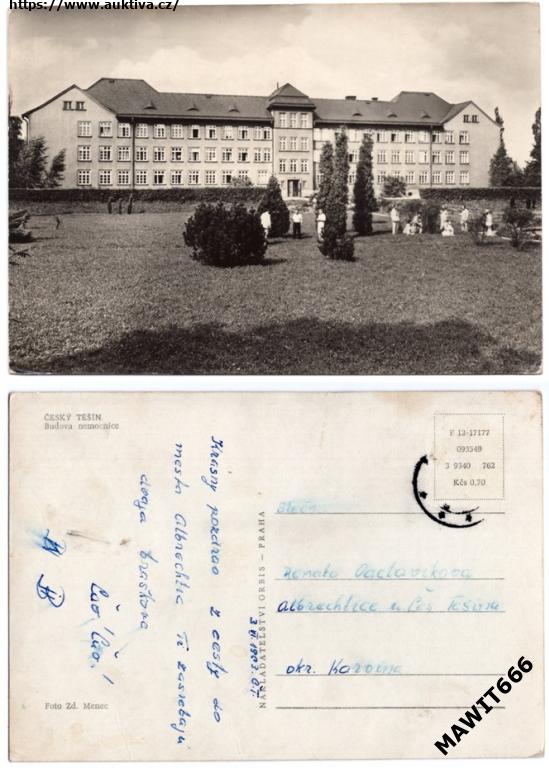 https://www.auktiva.cz/
ČESKÝ TĚŠÍN
Budova nemocnice
Krásny pozdrav z cesty do
mesta Albrechtic Ti zasielajú
dvaja
Čao! Čao!
Foto Zd. Menec
NAKLADATELSTVÍ ORBIS — PRAHA
F 12-17177
093549
3 9340 762
Kčs 0,70
Renata Vaclavikova
Albrechtice u Čes Těšína
okr. Karvina
MAWIT666